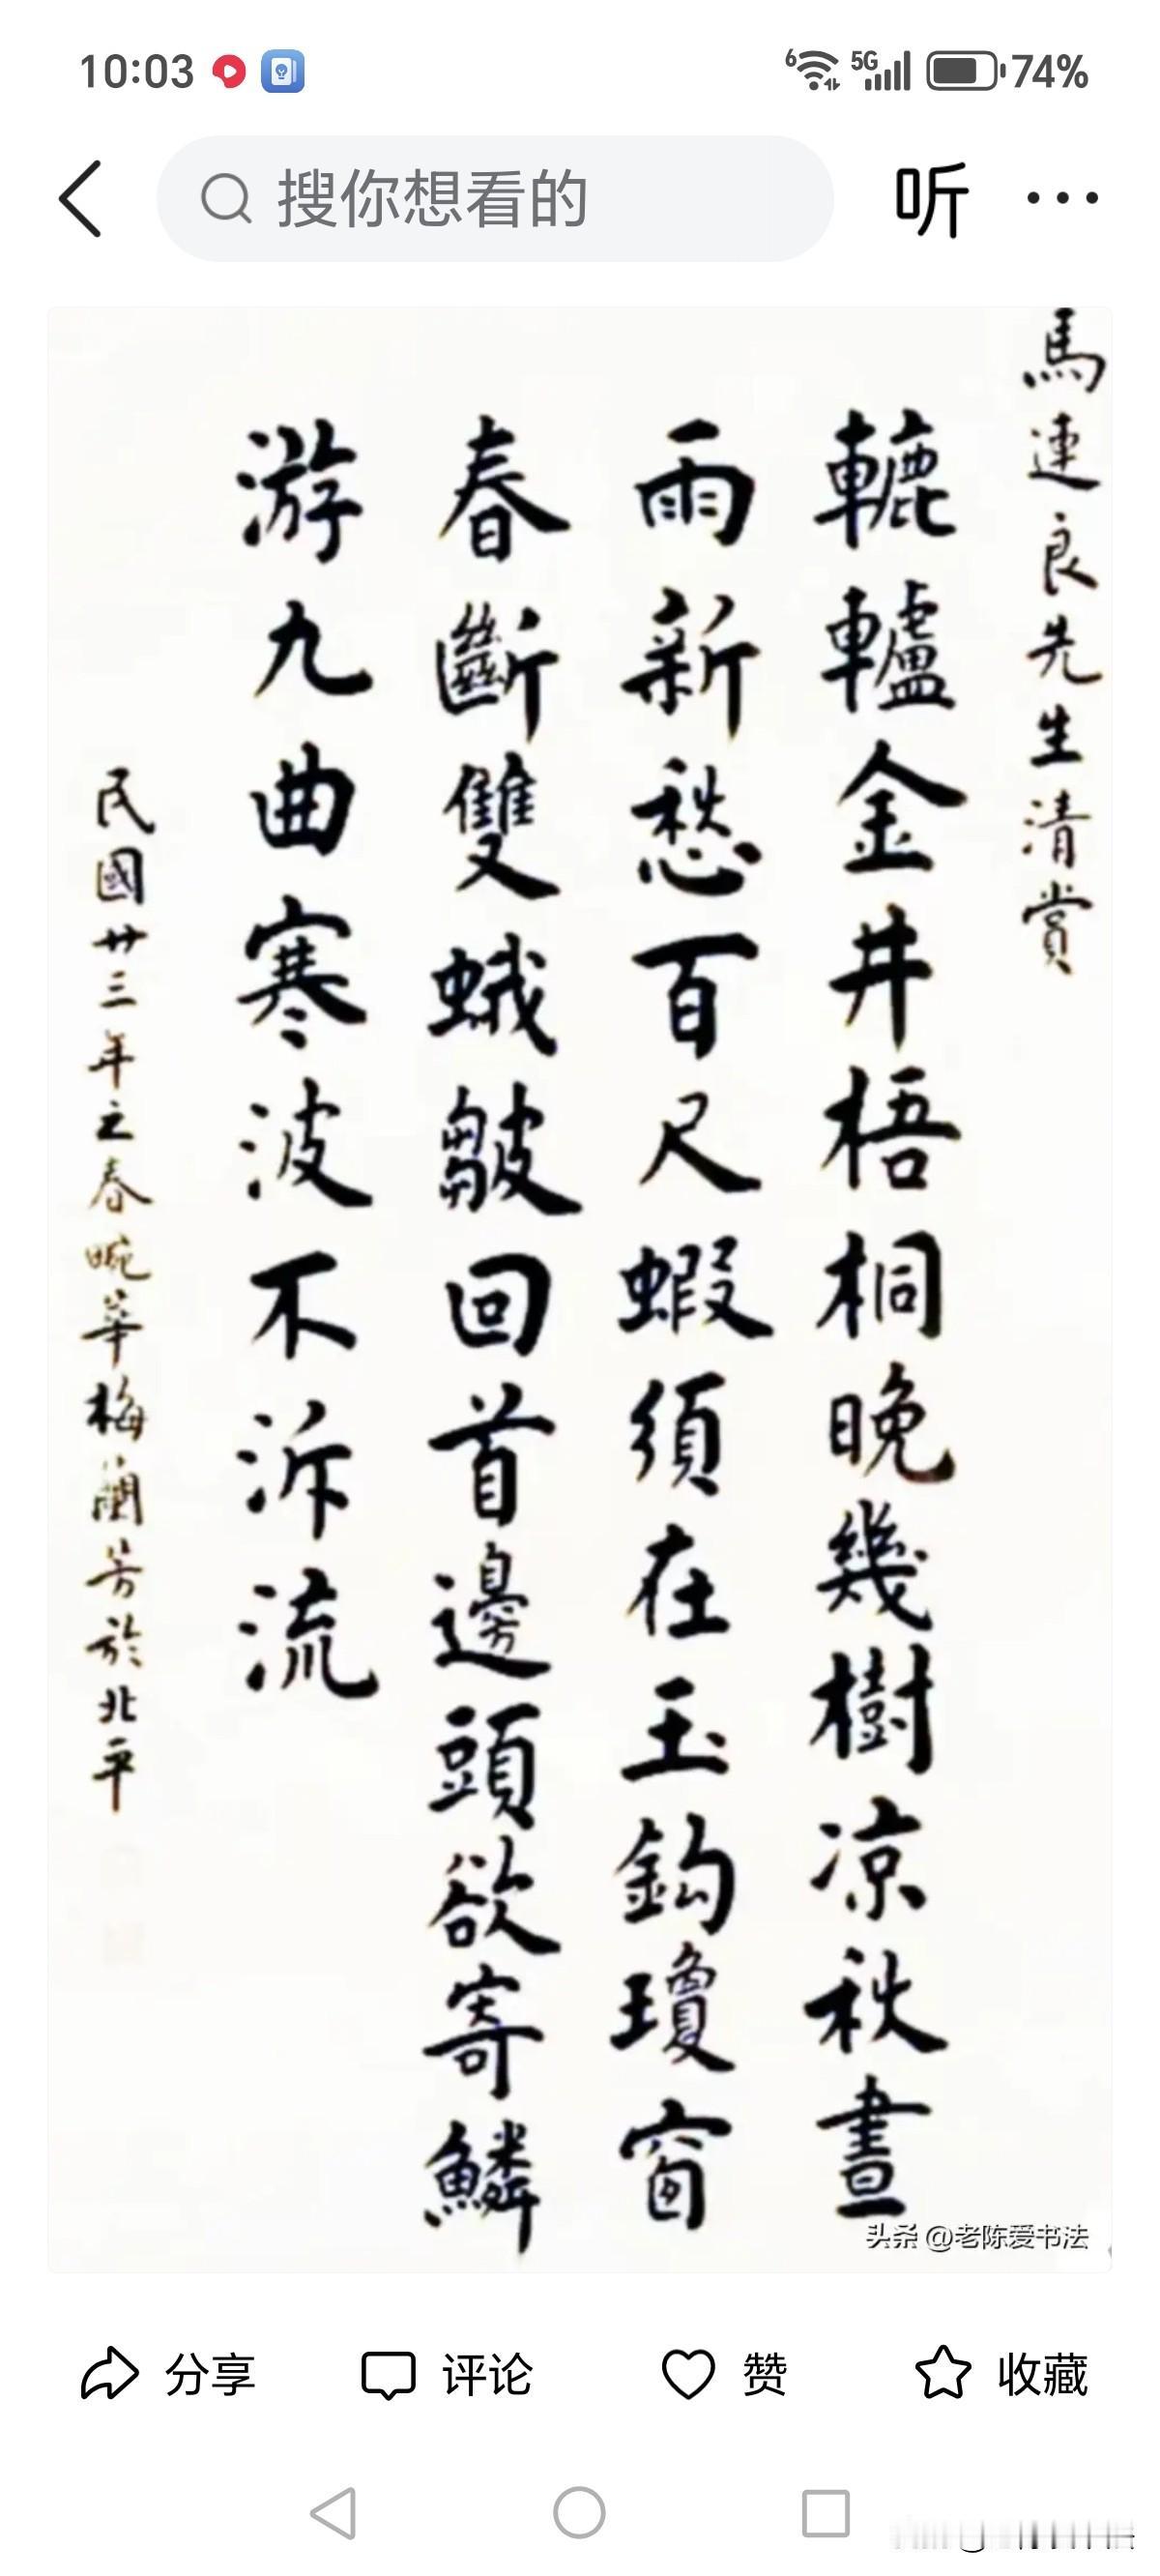 10:03
6 5G 74%
搜你想看的
听
馬連良先生清賞
轆轤金井梧桐晚幾樹凉秋晝
雨新愁百尺蝦須在玉鈎瓊窗
春斷雙蛾皺回首邊頭欲寄鱗
游九曲寒波不泝流
民國廿三年之春畹華梅蘭芳於北平
头条 @老陈爱书法
分享
评论
赞
收藏